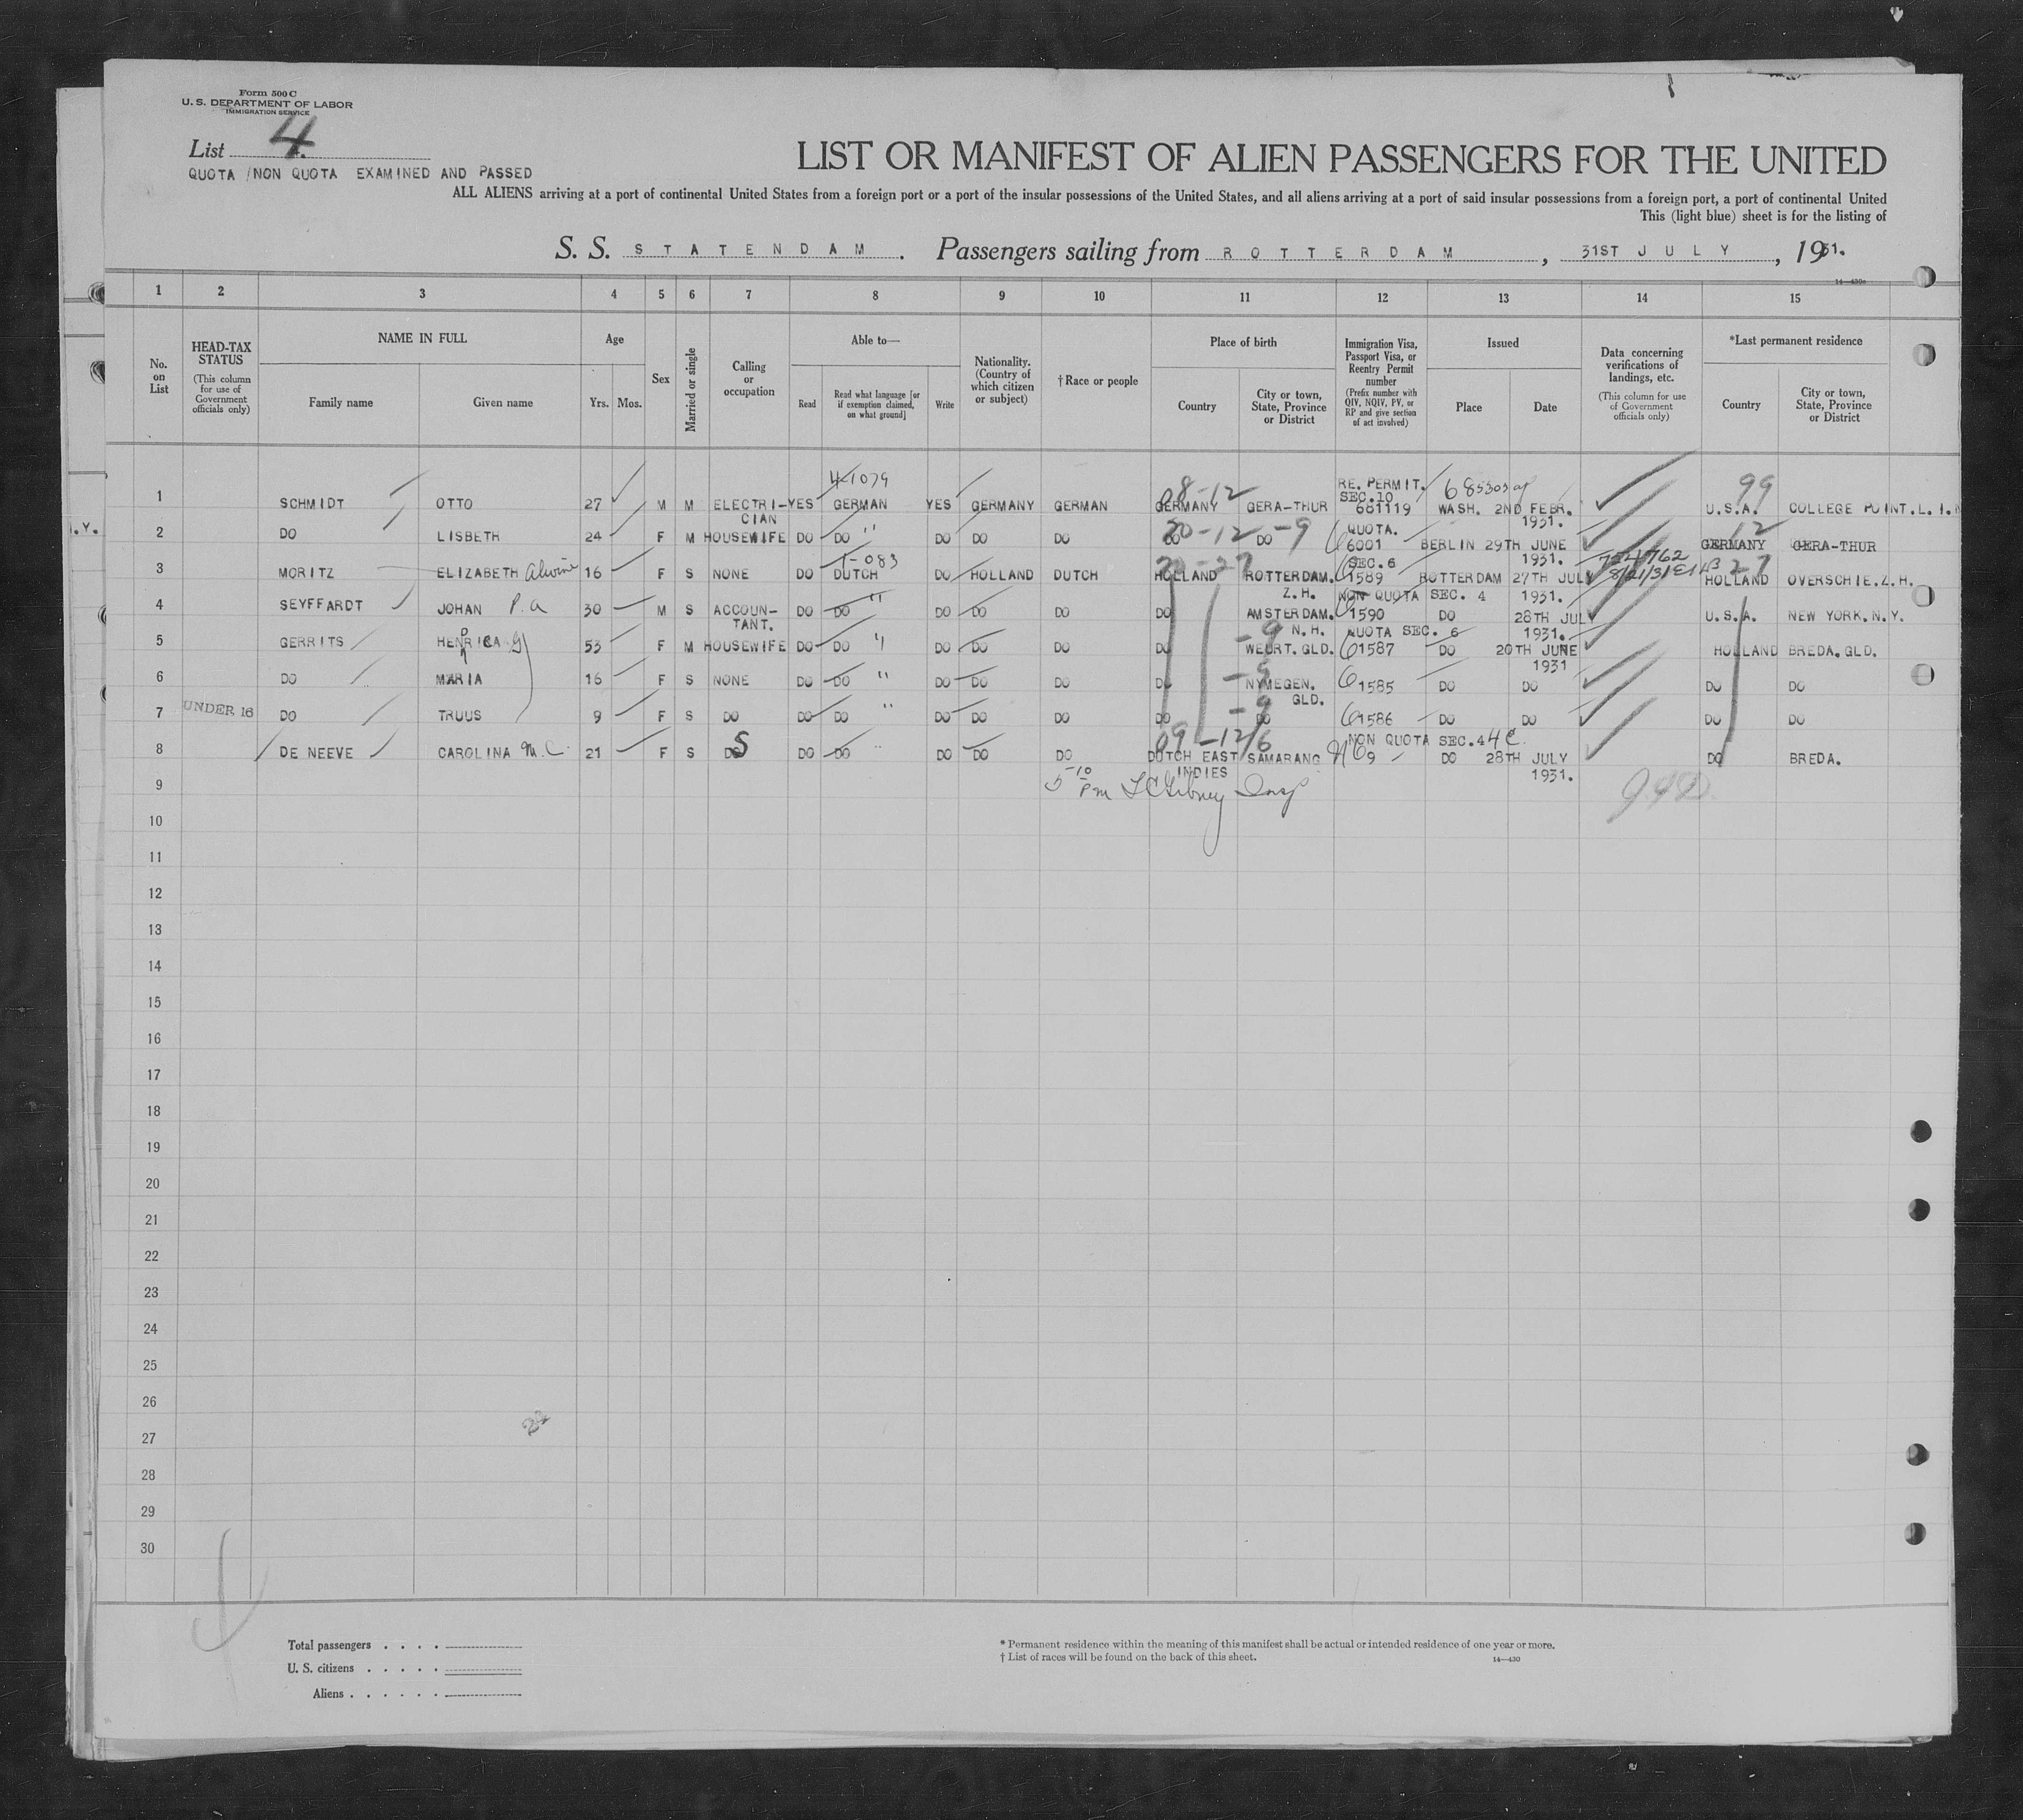 Form 500 C
U. S. DEPARTMENT OF LABOR
IMMIGRATION SERVICE
List 4
QUOTA / NON QUOTA EXAMINED AND PASSED
LIST OR MANIFEST OF ALIEN PASSENGERS FOR THE UNITED
ALL ALIENS arriving at a port of continental United States from a foreign port or a port of the insular possessions of the United States, and all aliens arriving at a port of said insular possessions from a foreign port, a port of continental United
This (light blue) sheet is for the listing of
S. S. STATENDAM. Passengers sailing from ROTTERDAM, 31ST JULY, 1931.
14—430a
1 2 3 4 5 6 7 8 9 10 11 12 13 14 15
No. on List
HEAD-TAX STATUS (This column for use of Government officials only)
NAME IN FULL
Family name Given name
Age
Yrs. Mos.
Sex
Married or single
Calling or occupation
Able to—
Read Read what language [or if exemption claimed, on what ground] Write
Nationality. (Country of which citizen or subject)
† Race or people
Place of birth
Country City or town, State, Province or District
Immigration Visa, Passport Visa, or Reentry Permit number (Prefix number with QIV, NQIV, PV, or RP and give section of act involved)
Issued
Place Date
Data concerning verifications of landings, etc. (This column for use of Government officials only)
*Last permanent residence
Country City or town, State, Province or District
I.Y.
4-1079 08-12 RE. PERMIT. SEC.10 99
1 SCHMIDT OTTO 27 M M ELECTRI-CIAN YES GERMAN YES GERMANY GERMAN GERMANY GERA-THUR 681119 WASH. 2ND FEBR. 1931. U.S.A. COLLEGE POINT.L.I.
20-12 -9 QUOTA. 12
2 DO LISBETH 24 F M HOUSEWIFE DO DO " DO DO DO DO DO 6001 BERLIN 29TH JUNE 1931. GERMANY GERA-THUR
1-083 20-27 SEC.6 27
3 MORITZ ELIZABETH Alwine 16 F S NONE DO DUTCH DO HOLLAND DUTCH HOLLAND ROTTERDAM. Z.H. 1589 ROTTERDAM 27TH JULY 1931. HOLLAND OVERSCHIE.Z.H.
NON QUOTA SEC. 4
4 SEYFFARDT JOHAN P.A 30 M S ACCOUN-TANT. DO DO " DO DO DO DO AMSTERDAM. N.H. 1590 DO 28TH JULY 1931. U.S.A. NEW YORK.N.Y.
-9 QUOTA SEC. 6
5 GERRITS HENRICA G 53 F M HOUSEWIFE DO DO " DO DO DO DO WEURT.GLD. 61587 DO 20TH JUNE 1931 HOLLAND BREDA.GLD.
6 DO MARIA 16 F S NONE DO DO " DO DO DO DO NYMEGEN. GLD. 61585 DO DO DO DO
-9
7 UNDER 16 DO TRUUS 9 F S DO DO DO " DO DO DO DO DO 61586 DO DO DO DO
09-12/6 NON QUOTA SEC.4 4C
8 DE NEEVE CAROLINA M.C. 21 F S DO S DO DO " DO DO DO DUTCH EAST INDIES SAMARANG 9 DO 28TH JULY 1931. DO BREDA.
9 5-10 Pm Insp
10
11
12
13
14
15
16
17
18
19
20
21
22
23
24
25
26
27
28
29
30
Total passengers . . . .
U. S. citizens . . . . .
Aliens . . . . . .
* Permanent residence within the meaning of this manifest shall be actual or intended residence of one year or more.
† List of races will be found on the back of this sheet.
14—430